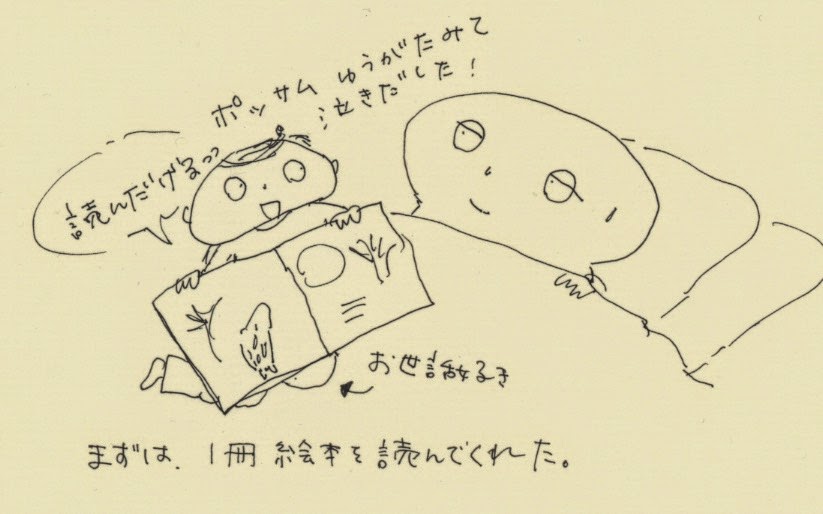 ポッサム ゆうがたみて
泣きだした!
読んだげるっっ
お世話好き
まずは、1冊 絵本を読んでくれた。